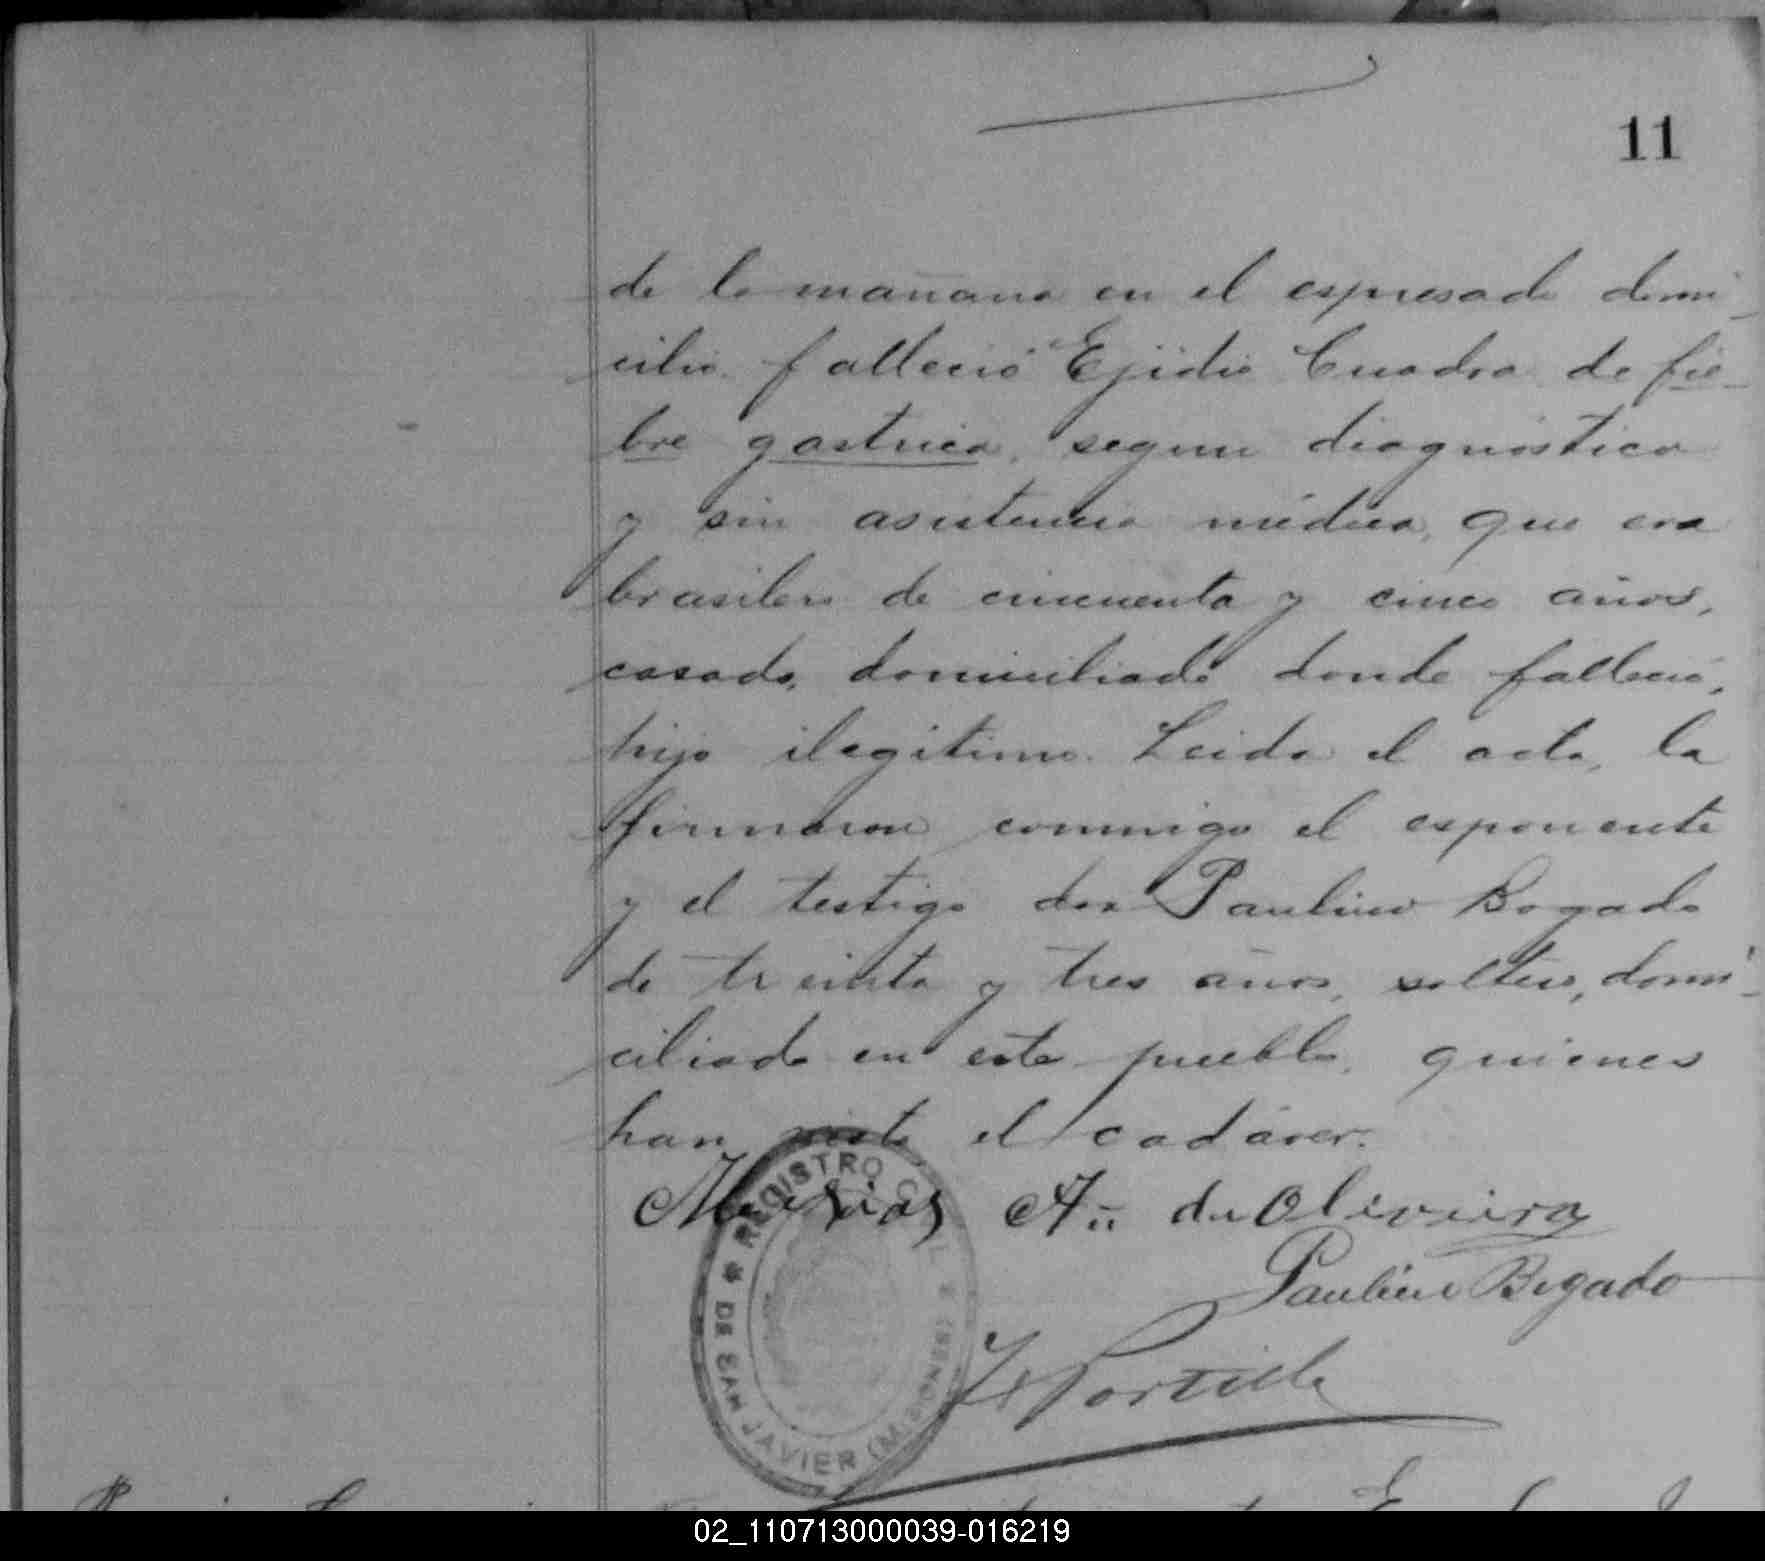 11
de la mañana en el espresado domi-
cilio falleció Ejidio Cuadra de fie-
bre gastrica, segun diagnóstico
y sin asistencia médica, que era
brasilero de cincuenta y cinco años,
casado, domiciliado donde falleció,
hijo ilegítimo. Leida el acta, la
firmaron conmigo el esponente
y el testigo don Paulino Bogado
de treinta y tres años, soltero, domi-
ciliado en este pueblo, quienes
han visto el cadáver.
Mesias An de Oliveira
Paulino Bogado
Portillo
REGISTRO CIVIL
DE SAN JAVIER (MISIONES)
02_110713000039-016219